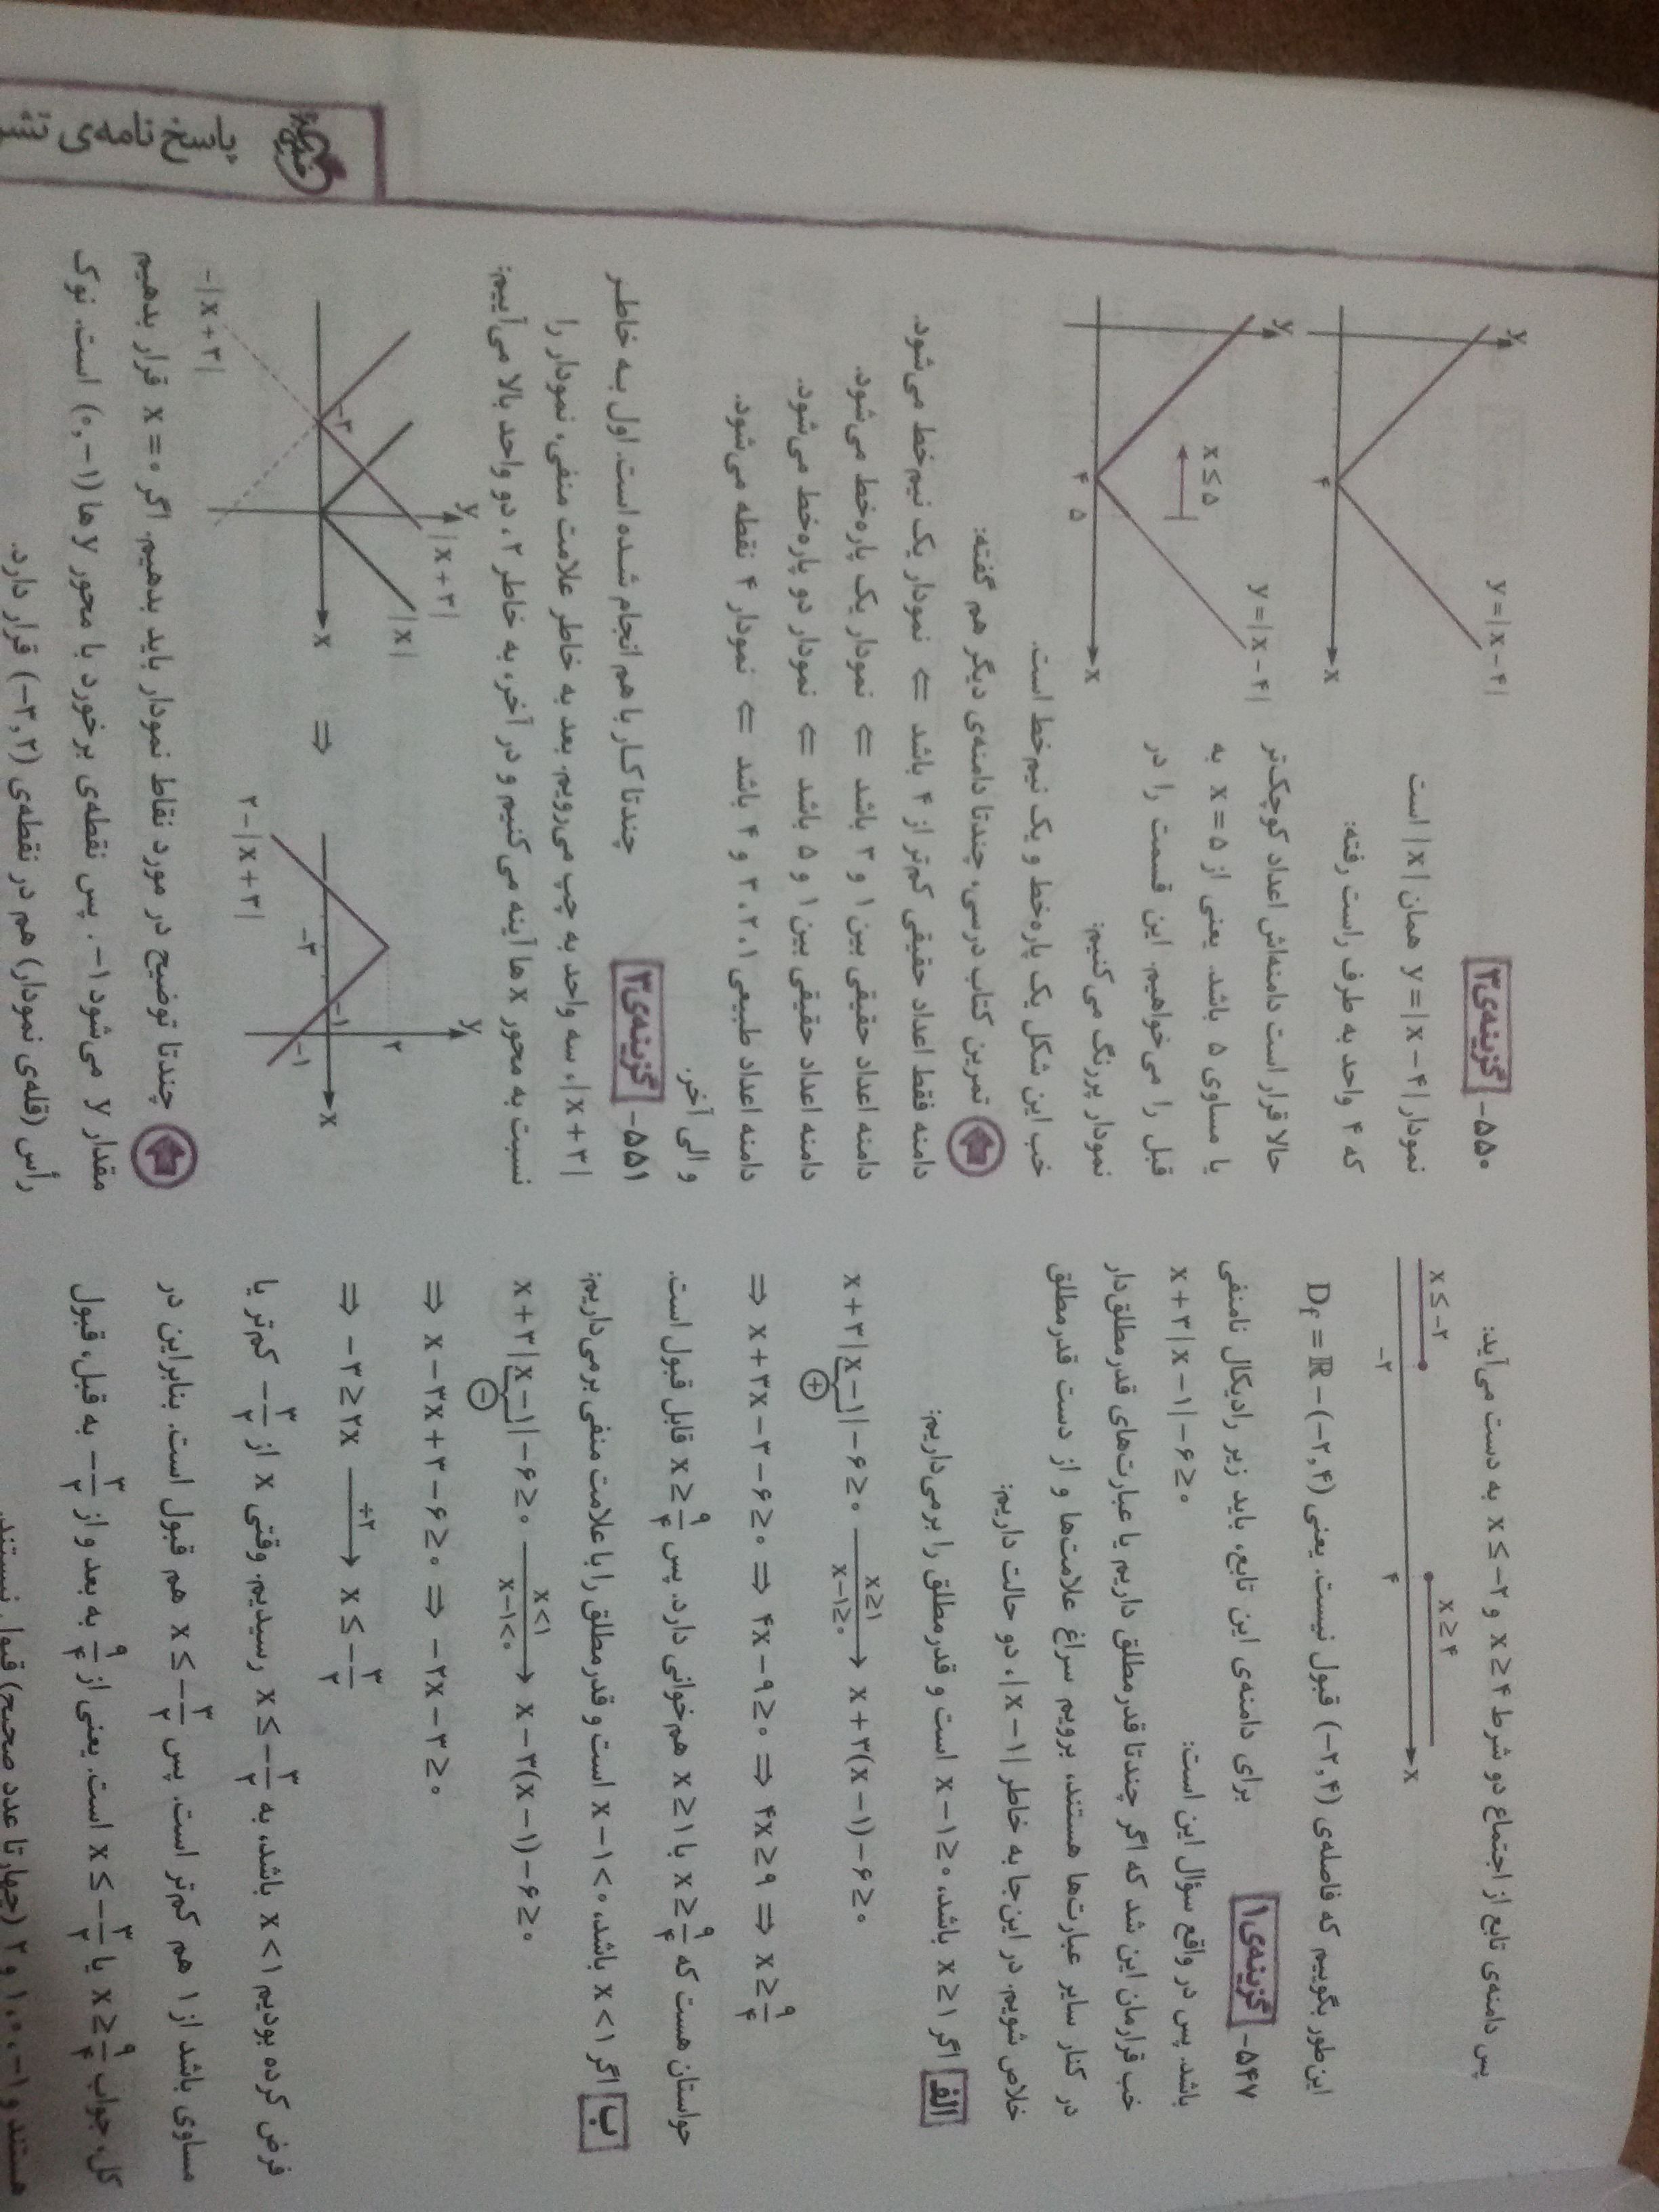 پاسخ نامه‌ی
پس دامنه‌ی تابع از اجتماع دو شرط x ≥ ۴ و x ≤ -۲ به دست می‌آید:
x ≤ -۲
x ≥ ۴
-۲
۴
x
این‌طور بگوییم که فاصله‌ی (-۲,۴) قبول نیست. یعنی D_f = ℝ - (-۲,۴)
۵۴۷- گزینه‌ی ۱
برای دامنه‌ی این تابع، باید زیر رادیکال نامنفی
باشد. پس در واقع سؤال این است: x + ۳|x - ۱| - ۶ ≥ ۰
خب قرارمان این شد که اگر چندتا قدرمطلق داریم یا عبارت‌های قدرمطلق‌دار
در کنار سایر عبارت‌ها هستند، برویم سراغ علامت‌ها و از دست قدرمطلق
خلاص شویم. در این‌جا به خاطر |x - ۱|، دو حالت داریم:
الف اگر x ≥ ۱ باشد، x - ۱ ≥ ۰ است و قدرمطلق را برمی‌داریم:
x + ۳|x - ۱| - ۶ ≥ ۰ —(x ≥ ۱ , x - ۱ ≥ ۰)→ x + ۳(x - ۱) - ۶ ≥ ۰
+
⇒ x + ۳x - ۳ - ۶ ≥ ۰ ⇒ ۴x - ۹ ≥ ۰ ⇒ ۴x ≥ ۹ ⇒ x ≥ ۹/۴
حواستان هست که x ≥ ۹/۴ با x ≥ ۱ هم‌خوانی دارد. پس x ≥ ۹/۴ قابل قبول است.
ب اگر x < ۱ باشد، x - ۱ < ۰ است و قدرمطلق را با علامت منفی برمی‌داریم:
x + ۳|x - ۱| - ۶ ≥ ۰ —(x < ۱ , x - ۱ < ۰)→ x - ۳(x - ۱) - ۶ ≥ ۰
-
⇒ x - ۳x + ۳ - ۶ ≥ ۰ ⇒ -۲x - ۳ ≥ ۰
⇒ -۳ ≥ ۲x —(÷۲)→ x ≤ -۳/۲
فرض کرده بودیم x < ۱ باشد، به x ≤ -۳/۲ رسیدیم. وقتی x از -۳/۲ کم‌تر یا
مساوی باشد از ۱ هم کم‌تر است. پس x ≤ -۳/۲ هم قبول است. بنابراین در
کل، جواب x ≥ ۹/۴ یا x ≤ -۳/۲ است. یعنی از ۹/۴ به بعد و از -۳/۲ به قبل، قبول
هستند و -۱، ۰، ۱ و ۲ (چهار تا عدد صحیح) قبول نیستند.
۵۵۰- گزینه‌ی ۳
نمودار y = |x - ۴| همان |x| است
که ۴ واحد به طرف راست رفته:
y
y = |x - ۴|
۴
x
حالا قرار است دامنه‌اش اعداد کوچک‌تر
یا مساوی ۵ باشد. یعنی از x = ۵ به
قبل را می‌خواهیم. این قسمت را در
نمودار پررنگ می‌کنیم:
y
y = |x - ۴|
x ≤ ۵
۴ ۵
x
خب این شکل یک پاره‌خط و یک نیم‌خط است.
تمرین کتاب درسی، چندتا دامنه‌ی دیگر هم گفته:
دامنه فقط اعداد حقیقی کم‌تر از ۴ باشد ⇐ نمودار یک نیم‌خط می‌شود.
دامنه اعداد حقیقی بین ۱ و ۳ باشد ⇐ نمودار یک پاره‌خط می‌شود.
دامنه اعداد حقیقی بین ۱ و ۵ باشد ⇐ نمودار دو پاره‌خط می‌شود.
دامنه اعداد طبیعی ۱، ۲، ۳ و ۴ باشد ⇐ نمودار ۴ نقطه می‌شود.
و الی آخر.
۵۵۱- گزینه‌ی ۳
چندتا کار با هم انجام شده است. اول به خاطر
|x + ۳|، سه واحد به چپ می‌رویم. بعد به خاطر علامت منفی، نمودار را
نسبت به محور xها آینه می‌کنیم و در آخر، به خاطر ۲، دو واحد بالا می‌آییم:
y
|x + ۳|
|x|
-۳
x
-|x + ۳|
⇒
y
۲
-۳
-۱
-۱
x
۲ - |x + ۳|
چندتا توضیح در مورد نقاط نمودار باید بدهیم. اگر x = ۰ قرار بدهیم
مقدار y می‌شود -۱. پس نقطه‌ی برخورد با محور yها (۰,-۱) است. نوک
رأس (قله‌ی نمودار) هم در نقطه‌ی (-۳,۲) قرار دارد.